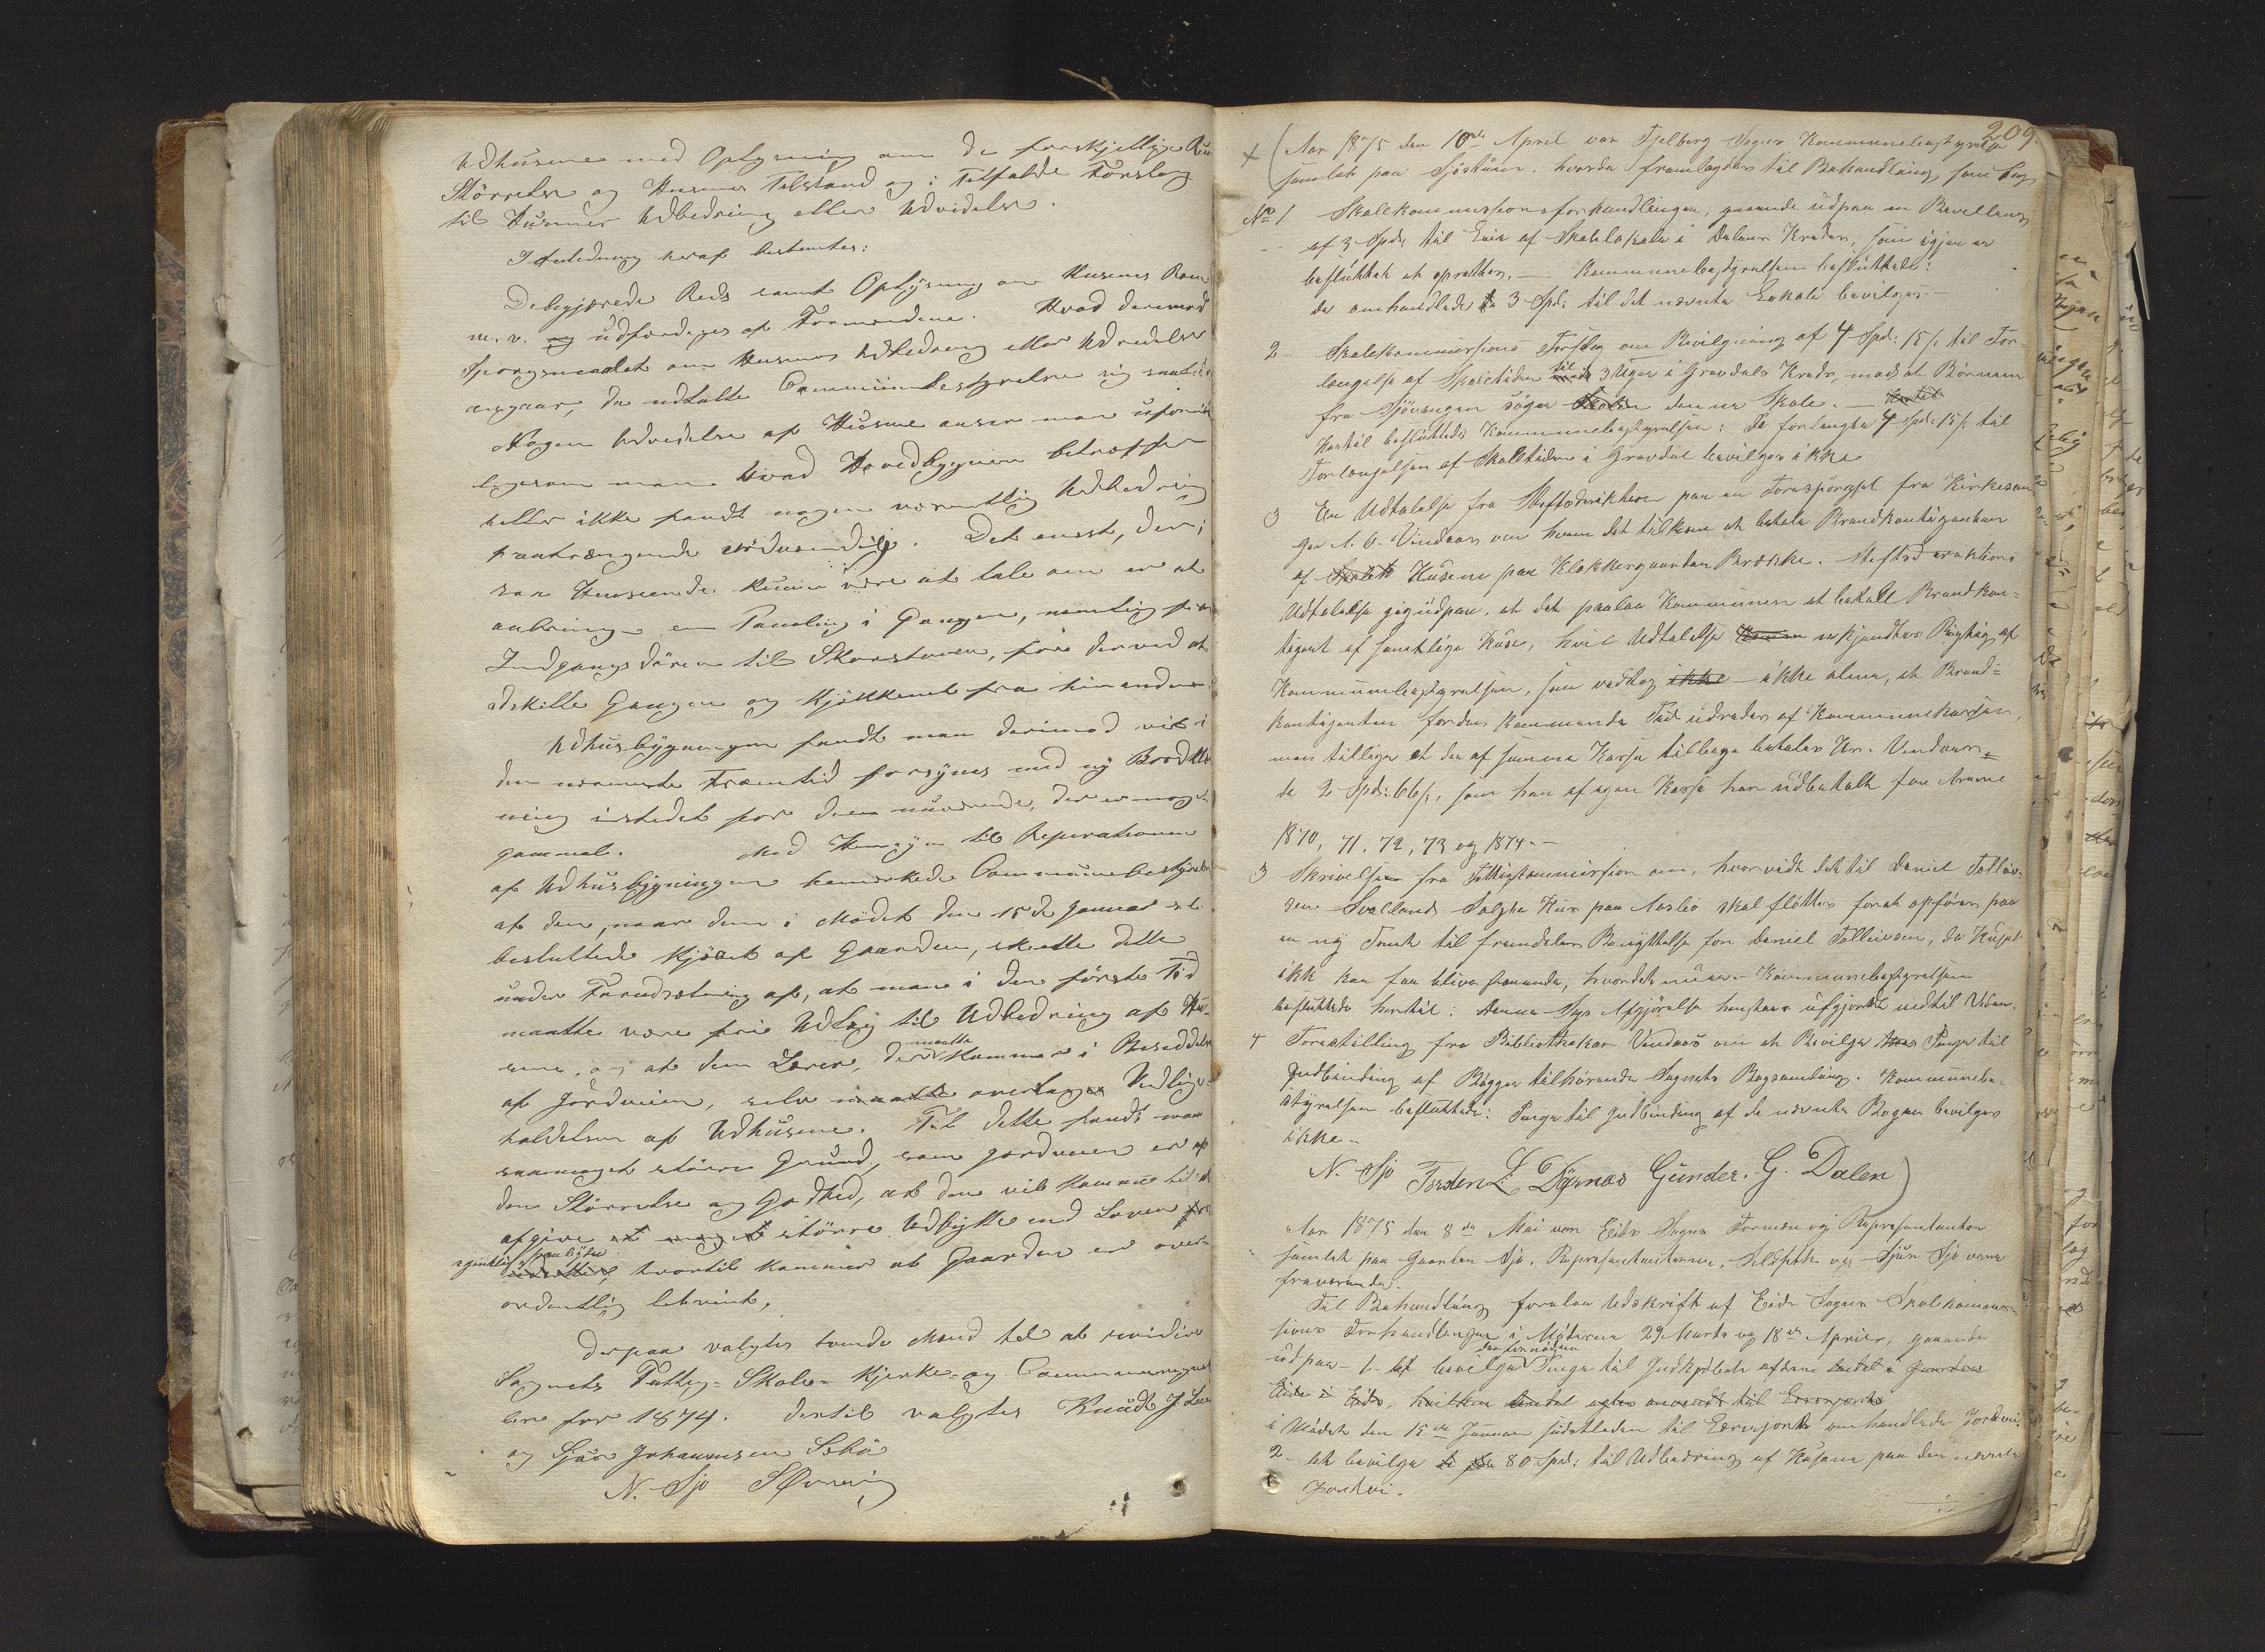 Udhusene med Oplysning om de forskjellige Rums
Størrelse og Husenes Tilstand og i Tilfælde Forslag
til Husenes Udbedring eller Udvidelse.
I Anledning heraf bestemtes:
De begjærede Reds samt Oplysning om Husenes Rum
m.v. og udfærdiges af Formændene. Hvad derimod
Spørgsmaalet om Husenes Udbedring eller Udvidelse
angaar, da udtalte Communebestyrelsen sig saaledes:
Nogen Udvidelse af Husene anser man ufornøden
ligesom man hvad Hovedbygningen betræffer
heller ikke fandt nogen væsentlig Udbedring
paatrængende nødvendig. Det eneste, der i
saa Henseende kunne være at tale om er at
anbringe en Paneling i Gangen, nemlig fra
Indgangsdøren til Skorstenen, for derved at
adskille Gangen og Kjøkkenet fra hinanden.
Udhusbygningen fandt man derimod vil i
den nærmeste Fremtid forsynes med ny Bordklæd
ning istedet for den nuværende, der er noget
gammel. Med Hensyn til Reperationen
af Udhusbygningen bemærkede Communebestyrelsen
at den, naar den i Mødet den 15de Januar d.A.
besluttede Kjøbet af Gaarden, skeede dette
under Forudsætning af, at man i den første Tid
maatte være fri Udlæg til Udbedring af Hu-
sene, og at den Lærer, der maatte kommer i Besiddelse
af Jordveien, selv maatte overtage Vedlige-
holdelsen af Udhusene. Til dette fandt man
saameget større Grund, som Jordveien er af
den Størrelse og Godhed, at den vil komme til at
afgive et meget større Udbytte end Loven for
egentlig paabyder hvortil kommer at Gaarden er over-
ordentlig letvindt,
Derpaa valgtes tvende Mænd til at revidere
Sognets Fattig- Skole- Kjerke- og Communeregnska
ber for 1874. Dertil valgtes Knud J. Lee
og Sjur Johannesen Sebø
N. Sjo S Ørnevig
209.
x (Aar 1875 den 10de April var Fjelberg Sogns Kommunebestyrelse
samlet paa Sjostuen, hvorda fremlagdes til Behandling som Sag
No 1 Skolekommissionsforhandlingen, gaaende udpaa en Bevillning
af 3 Spd. til Leie af Skolelokale i Dalens Kreds, som igjen er
besluttet at oprettes. — Kommunebestyrelsen besluttede:
de omhandlede 3 Spd: til det nævnte Lokale bevilges. —
2 Skolekommissions Forslag om Bevilgning af 4 Spd: 15 s. til For-
længelse af Skoletiden til 3 Uger i Gravdals Kreds, mod at Børnene
fra Sjøvangen søger Skolen denne Skole. — Hertil
Hertil besluttede Kommunebestyrelsen: De forlangte 4 Spd. 15 s. til
Forlængelsen af Skoletiden i Gravdal bevilges ikke
3 En Udtalelse fra Stiftsdirektion paa en Forespørgsel fra Kirkesan
ger A. O. Vindenes om hvem det tilkom at betale Brandkontigenten
af Skoleh Husene paa Klokkergaarden Brekke. Stiftsdirektions
Udtalelse gik udpaa, at det paalaa Kommunen at betale Brandkon-
tigent af samtlige Huse, hvis Udtalelse erkjendtes Rigtig af
Kommunebestyrelsen, som vedtog ikke — ikke alene, at Brand-
kontigenten for den kommende Tid udredes af Kommunekassen,
men tillige at der af samme Kasse tilbage betales Hr. Vindenes
de 2 Spd: 66 s., som han af egen Kasse har udbetalt for Aarene
1870, 71, 72, 73 og 1874. —
3 Skrivelse fra Fattigkommission om, hvorvidt det til Daniel Tolleiv-
sen Svelland Solgte Hus paa Aaslio skal flyttes for at opføres paa
en ny Tomt til fremdeles Benyttelse for Daniel Tolleivsen, da Huset
ikke kan faa blive staaende, hvor det nu er. Kommunebestyrelsen
besluttede hertil: Denne Sags Afgjørelse henstaar uafgjort indtil Viden.
4 Forestilling fra Bibliothekar Vindenes om at Bevilge Penge til
Indbinding af Bøgger tilhørende Sognets Bogsamling. Kommunebe-
styrelsen besluttede: Penge til Indbinding af de nævnte Bøger bevilges
ikke. —
N. Sjo Torsten L. Dyrnas Gunder. G. Dalen)
Aar 1875 den 8de Mai var Eids Sogns Formæn og Representanter
samlet paa Gaarden Sjo. Representanterne Seldseth og Sjur Sjo vare
fraværende.
Til Behandling forelaa Udskrift af Eids Sogns Skolekommis-
sions Forhandlinger i Møterne 29 Marts og 18de April, gaaende
udpaa – 1. At bevilge fornødne Penge til Indkjøbet af den halve Gaarden
Eide i Eids, hvilken
i Mødet den 15de Januar sidstleden til Lærerjord omhandlede Jordvei.
2 – at bevilge 80 Spd: til Udbedring af Husene paa den nævnte
Jordvei. –